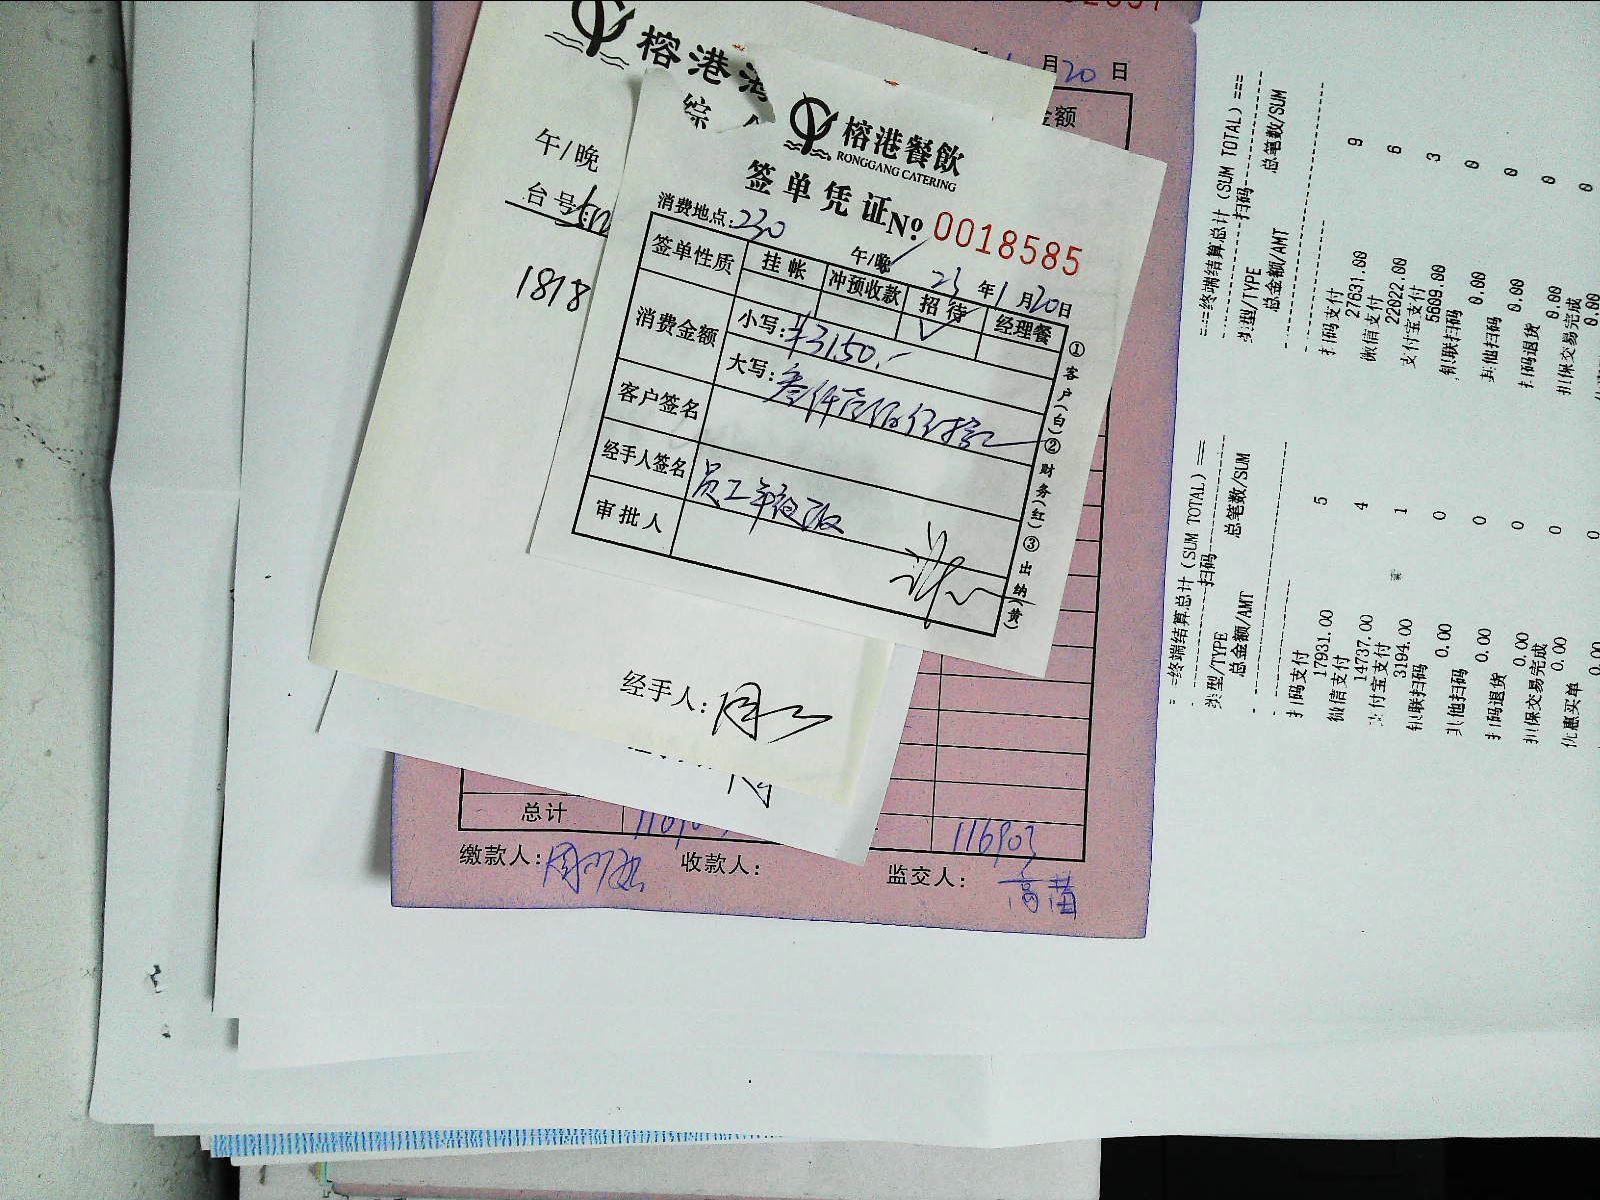 榕港湾
综
午/晚
台号
1818
经手人:
榕港餐飲
RONGGANG CATERING
签单凭证 № 0018585
消费地点:230 午/晚 23年1月20日
签单性质 挂帐 冲预收款 招待 经理餐
消费金额 小写:¥3150.-
大写:叁仟壹佰伍拾元
客户签名
经手人签名 员工年夜饭
审批人
①客户(白)②财务(红)③出纳(黄)
月20日
金额
总计 116903
缴款人: 收款人: 监交人:
===终端结算总计(SUM TOTAL)===
扫码
类型/TYPE 总笔数/SUM
总金额/AMT
扫码支付 9
27631.00
微信支付 6
22022.00
支付宝支付 3
5609.00
银联扫码 0
0.00
其他扫码 0
0.00
扫码退货 0
0.00
担保交易完成 0
0.00
==终端结算总计(SUM TOTAL)===
扫码
类型/TYPE 总笔数/SUM
总金额/AMT
扫码支付 5
17931.00
微信支付 4
14737.00
支付宝支付 1
3194.00
银联扫码 0
0.00
其他扫码 0
0.00
扫码退货 0
0.00
担保交易完成 0
0.00
优惠买单 0
0.00